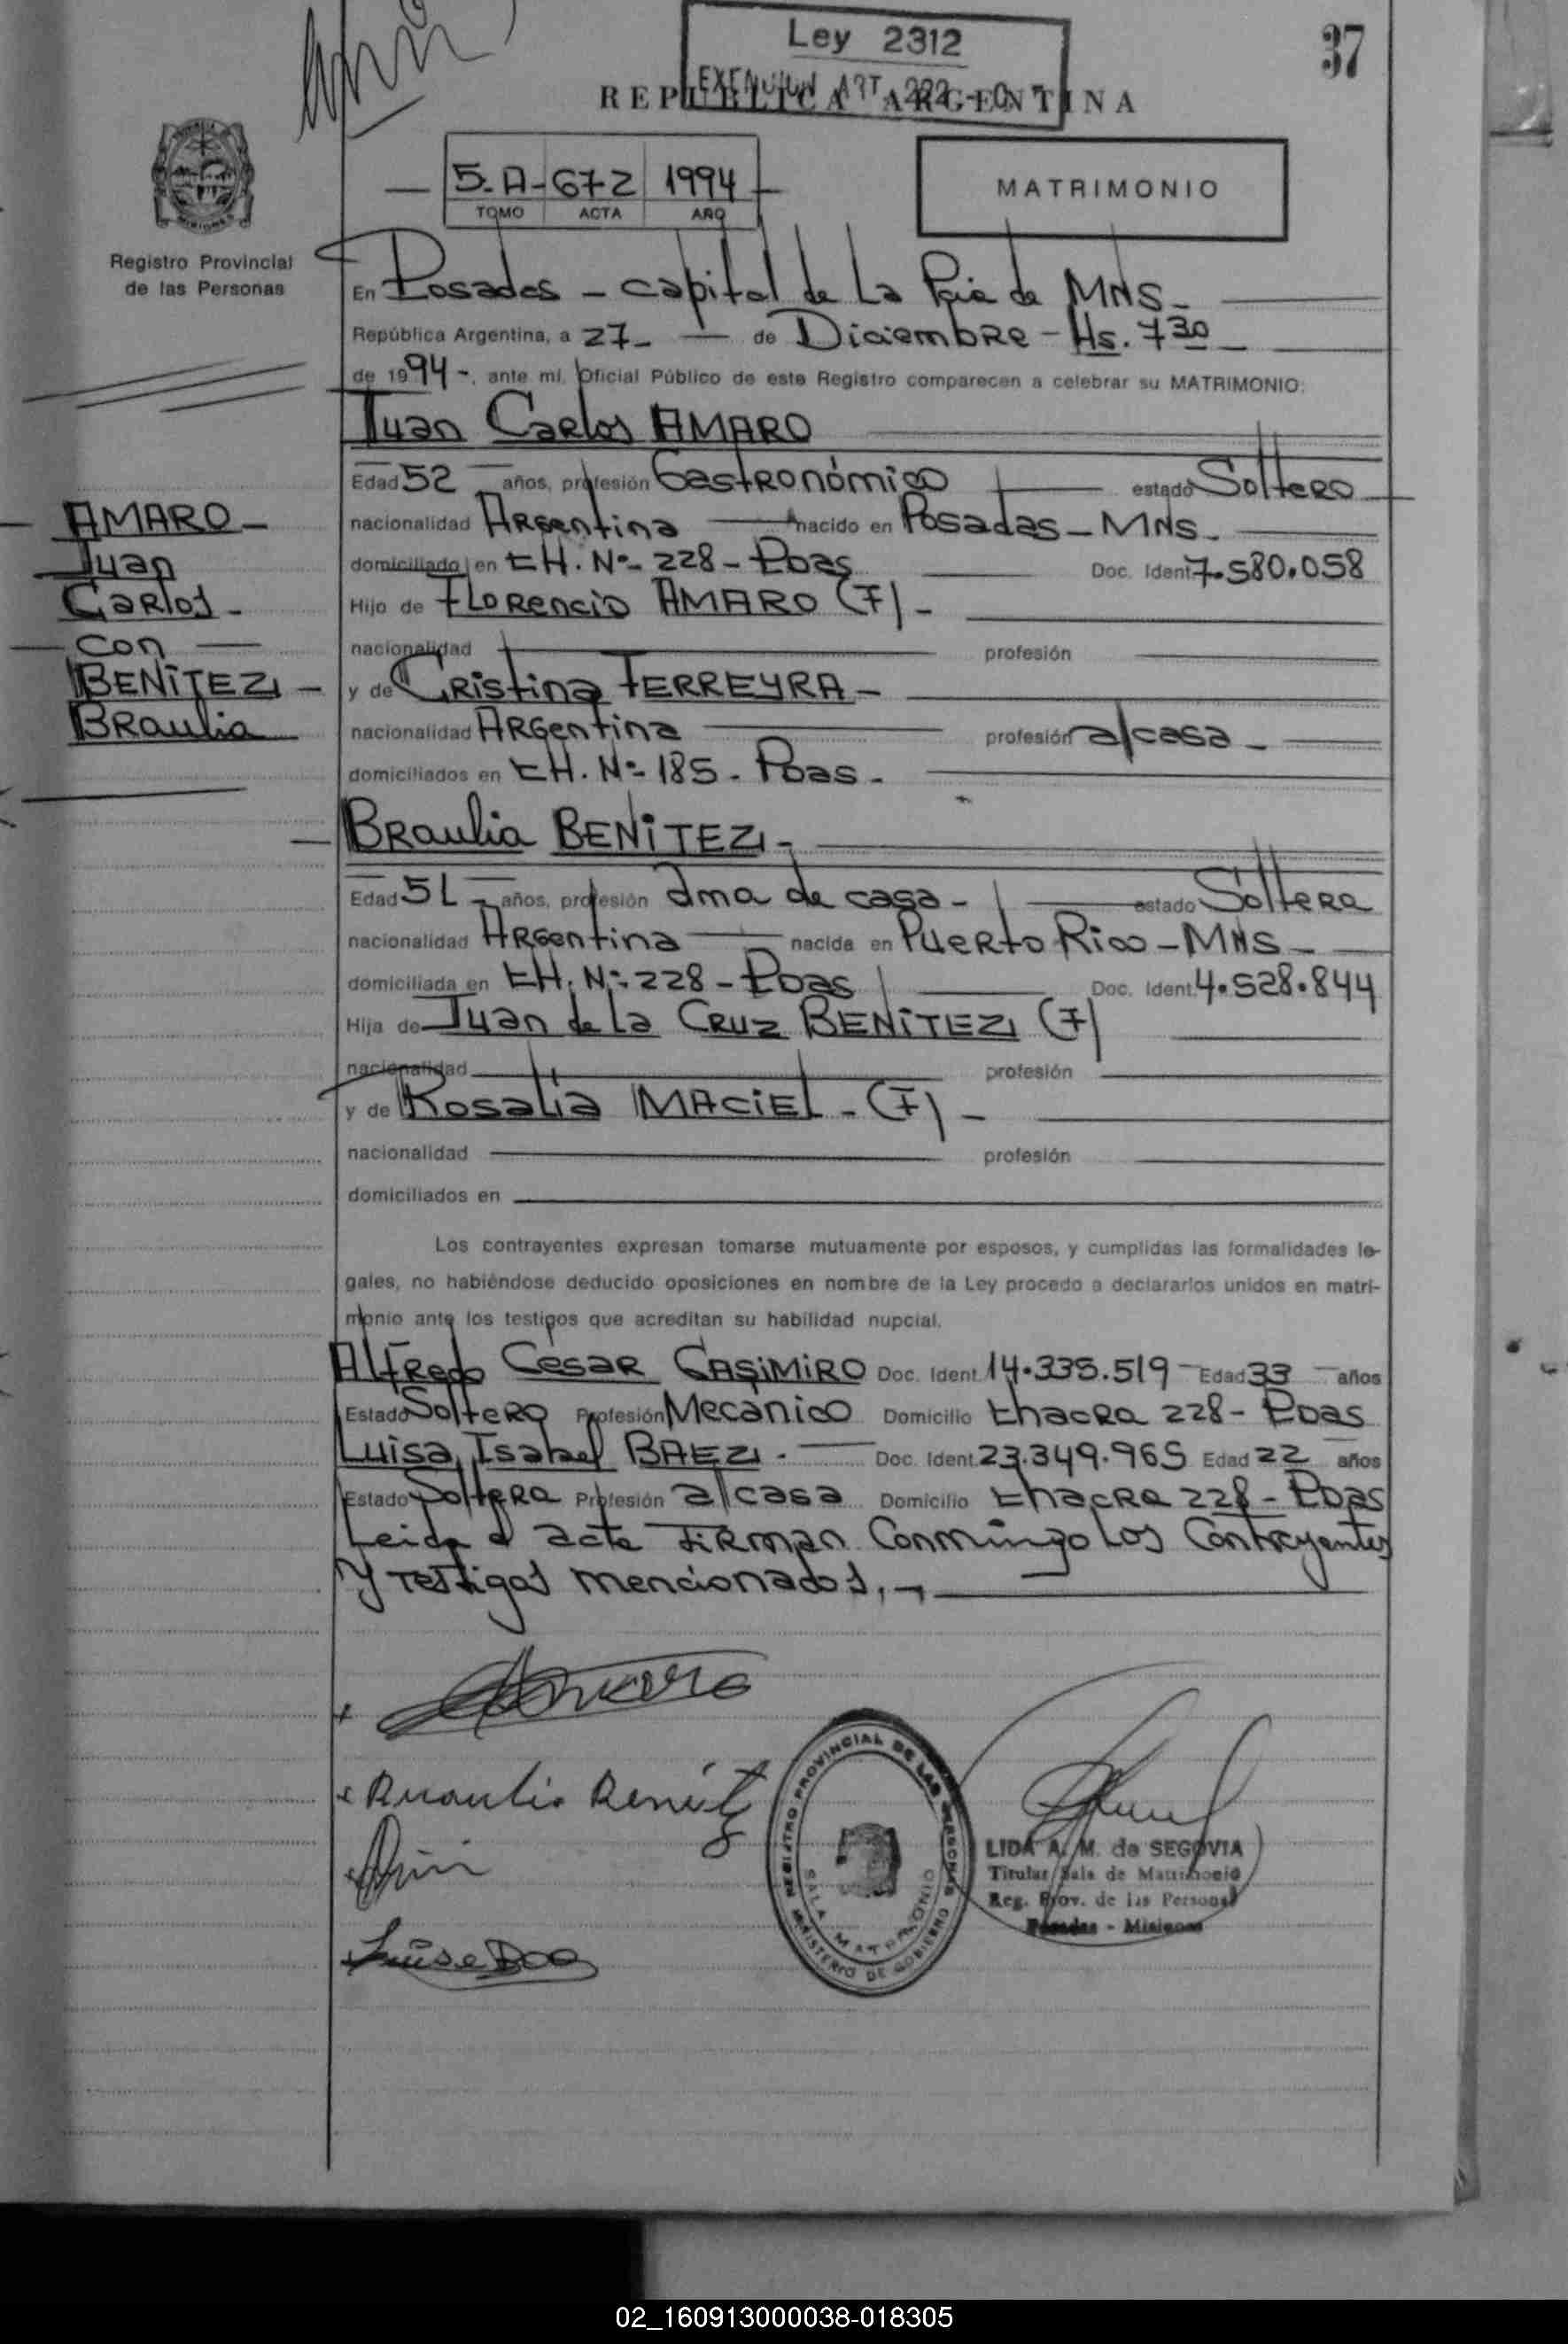 Ley 2312
37
REPUBLICA ARGENTINA
5-A- 672 1994
TOMO ACTA AÑO
MATRIMONIO
Registro Provincial
de las Personas
En Posadas - capital de La Pcia de MNS-
República Argentina, a 27- de Diciembre - Hs. 7 30
de 1994-, ante mí, Oficial Público de este Registro comparecen a celebrar su MATRIMONIO:
Juan Carlos AMARO
Edad 52 años, profesión Gastronómico estado Soltero
nacionalidad Argentina nacido en Posadas - MNS-
domiciliado en CH. Nº- 228 - Pdas Doc. Ident 7.580.058
Hijo de Florencio AMARO (F) -
nacionalidad profesión
y de Cristina FERREYRA -
nacionalidad Argentina profesión a/casa -
domiciliados en CH. Nº- 185 - Pdas -
AMARO -
Juan
Carlos -
con
BENITEZ -
Braulia
Braulia BENITEZ -
Edad 51 - años, profesión ama de casa - estado Soltera
nacionalidad Argentina nacida en Puerto Rico - MNS -
domiciliada en CH. Nº- 228 - Pdas Doc. Ident. 4.528.844
Hija de Juan de la Cruz BENITEZ (F)
nacionalidad profesión
y de Rosalia MACIEL - (F) -
nacionalidad profesión
domiciliados en
Los contrayentes expresan tomarse mutuamente por esposos, y cumplidas las formalidades le-
gales, no habiéndose deducido oposiciones en nombre de la Ley procedo a declararlos unidos en matri-
monio ante los testigos que acreditan su habilidad nupcial.
Alfredo Cesar CASIMIRO Doc. Ident. 14.335.519 - Edad 33 años
Estado Soltero Profesión Mecanico Domicilio Chacra 228 - Pdas
Luisa Isabel BAEZ - Doc. Ident. 23.349.965 Edad 22 años
Estado Soltera Profesión a/casa Domicilio Chacra 228 - Pdas
Leida el acta Firman Conmingo Los Contrayentes
y Testigos mencionados.-
Amaro
Braulia Benítez
REGISTRO PROVINCIAL DE LAS PERSONAS
SALA MATRIMONIO
MINISTERIO DE GOBIERNO
LIDA A. M. de SEGOVIA
Titular Sala de Matrimonio
Reg. Prov. de las Personas
Posadas - Misiones
02_160913000038-018305